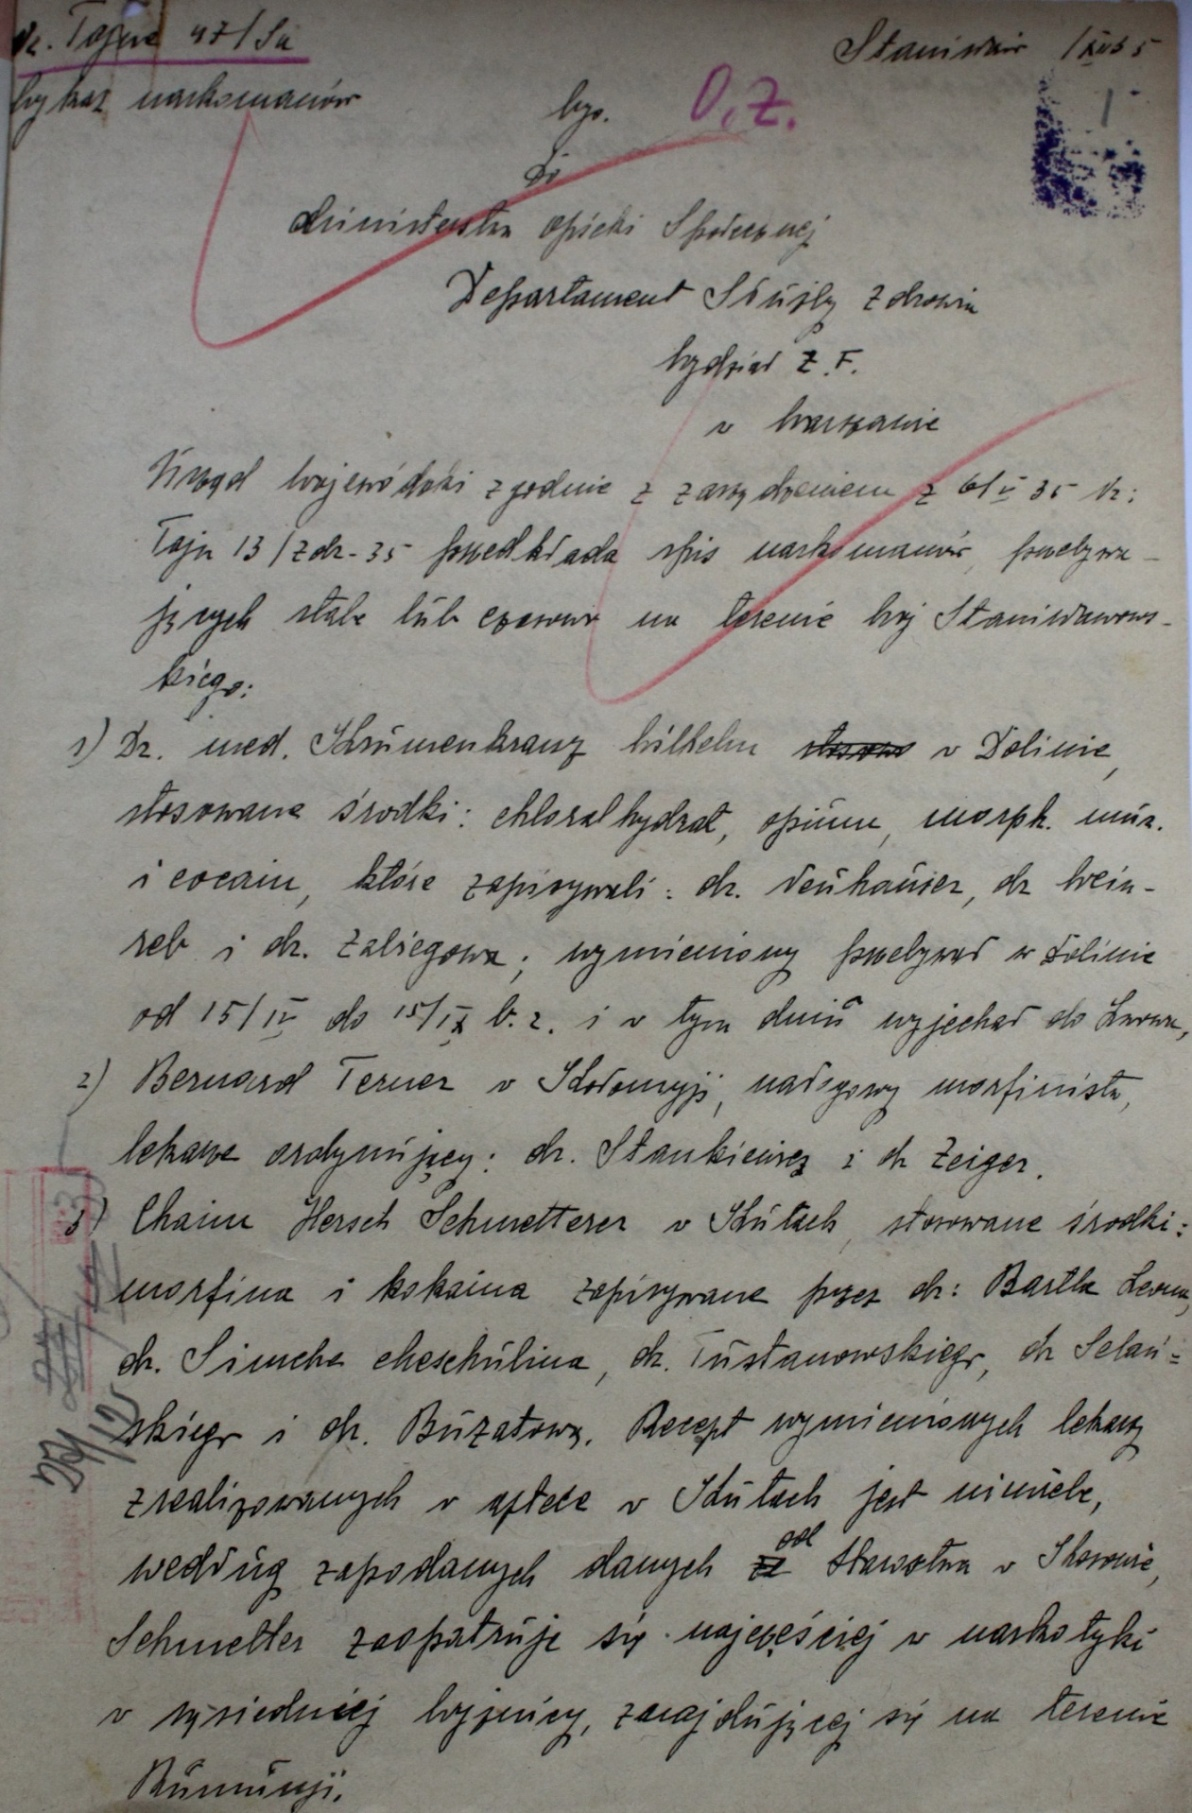 Nr. Tajne 47/Su
Stanisławów 1/XII 35
Wykaz narkomanów
Wys.
O.Z.
1
Do
Ministerstwa Opieki Społecznej
Departament Służby Zdrowia
Wydział Z.F.
w Warszawie
Urząd Wojewódzki zgodnie z zarządzeniem z 6/V 35 Nr:
Tajn 13/Zdr-35 przedkłada spis narkomanów, przebywa-
jących stale lub czasowo na terenie Woj Stanisławows-
kiego:
1) Dr. med. Krumenkranz Wilhelm w Dolinie,
stosowane środki: chloralhydrat, opium, morph. mur.
i cocain, które zapisywali: dr. Neuhauser, dr Wein-
reb i dr. Zaliegowa; wymieniony przebywał w Dolinie
od 15/IV do 15/IX b.r. i w tym dniu wyjechał do Lwowa,
2) Bernard Terner w Kołomyji, nałogowy morfinista,
lekarze ordynujący: dr. Stankiewicz i dr Zeiger.
3) Chaim Hersch Schmetterer w Kutach, stosowane środki:
morfina i kokaina zapisywane przez dr: Bartla Leona,
dr. Simche Cheschulina, dr. Tustanowskiego, dr Selań=
skiego i dr. Buzatową. Recept wymienionych lekarzy
zrealizowanych w aptece w Kutach jest niewiele,
według zapodanych danych od Starostwa w Kosowie,
Schmetter zaopatruje się najczęściej w narkotyki
w sąsiedniej Wyżnicy, znajdującej się na terenie
Rumunji.
29/12